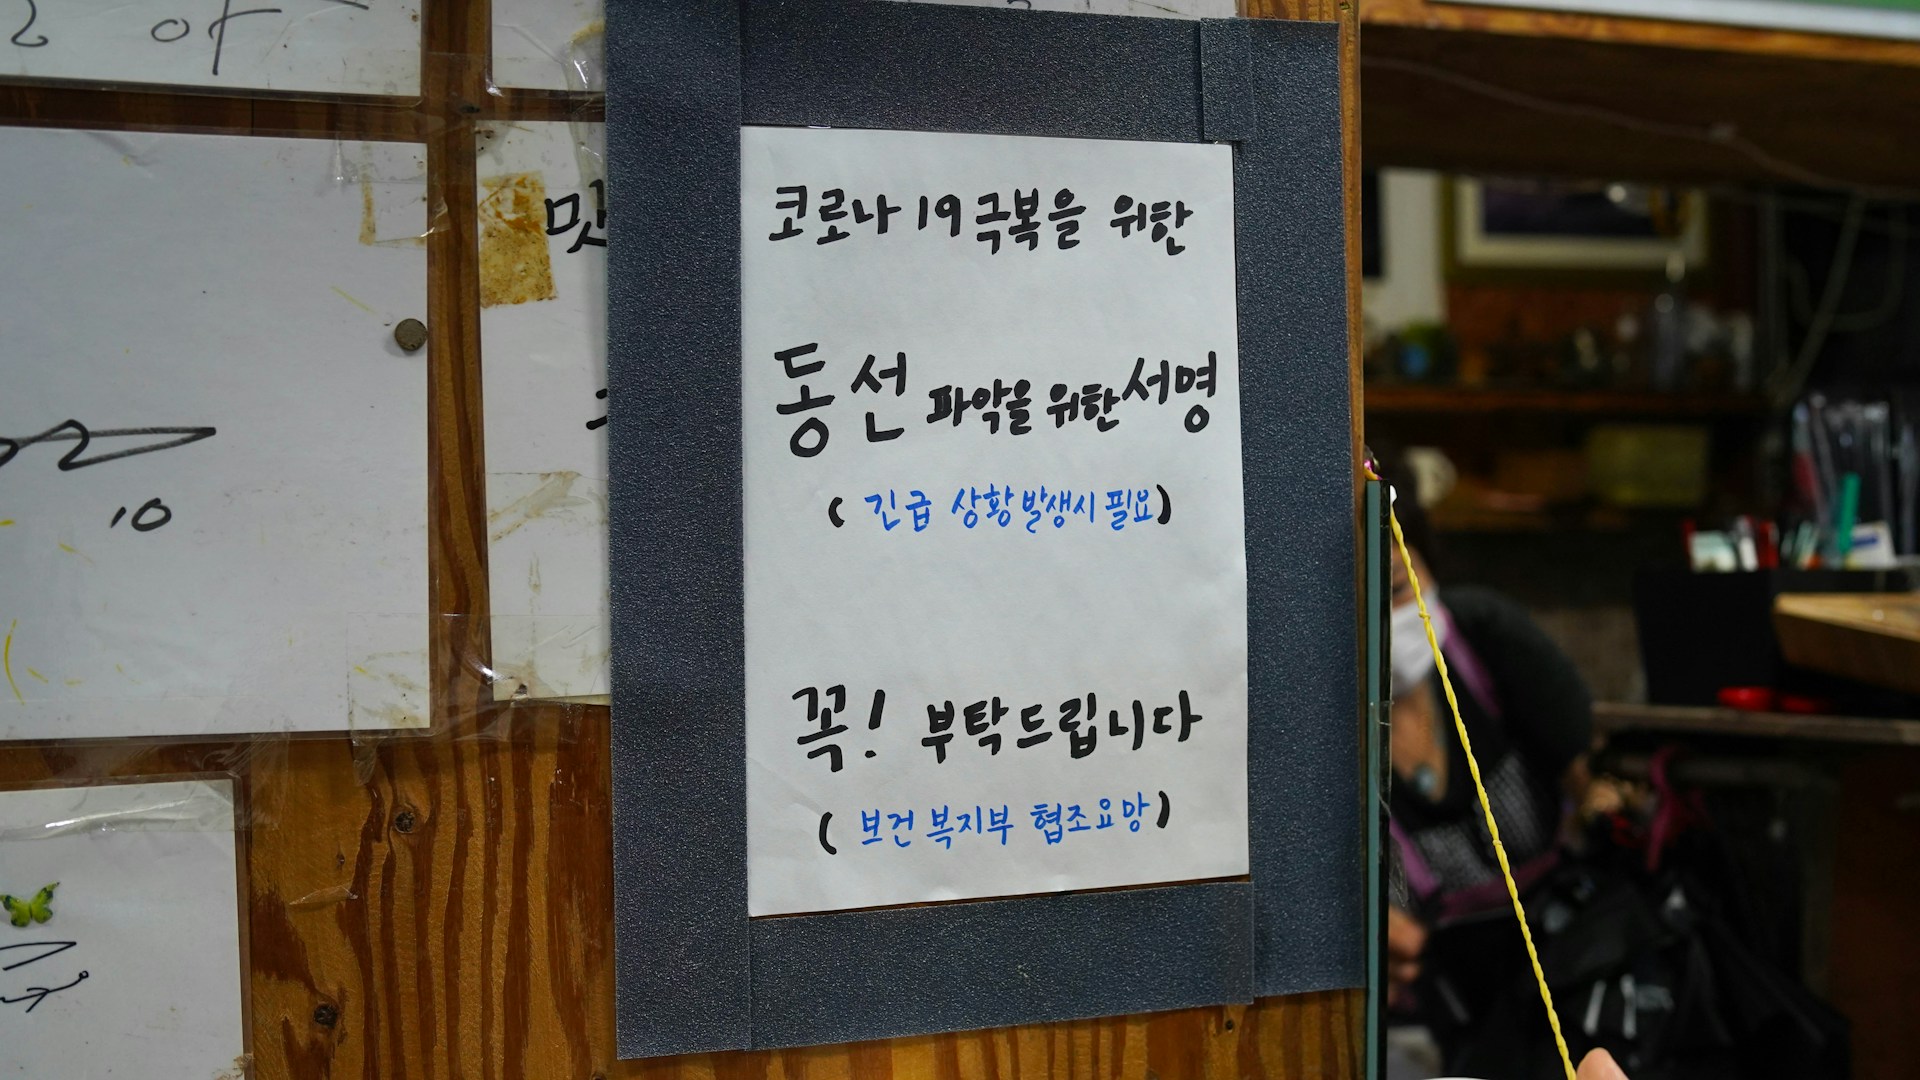 코로나 19 극복을 위한
동선 파악을 위한 서명
( 긴급 상황 발생시 필요)
꼭! 부탁드립니다
( 보건복지부 협조요망)
10